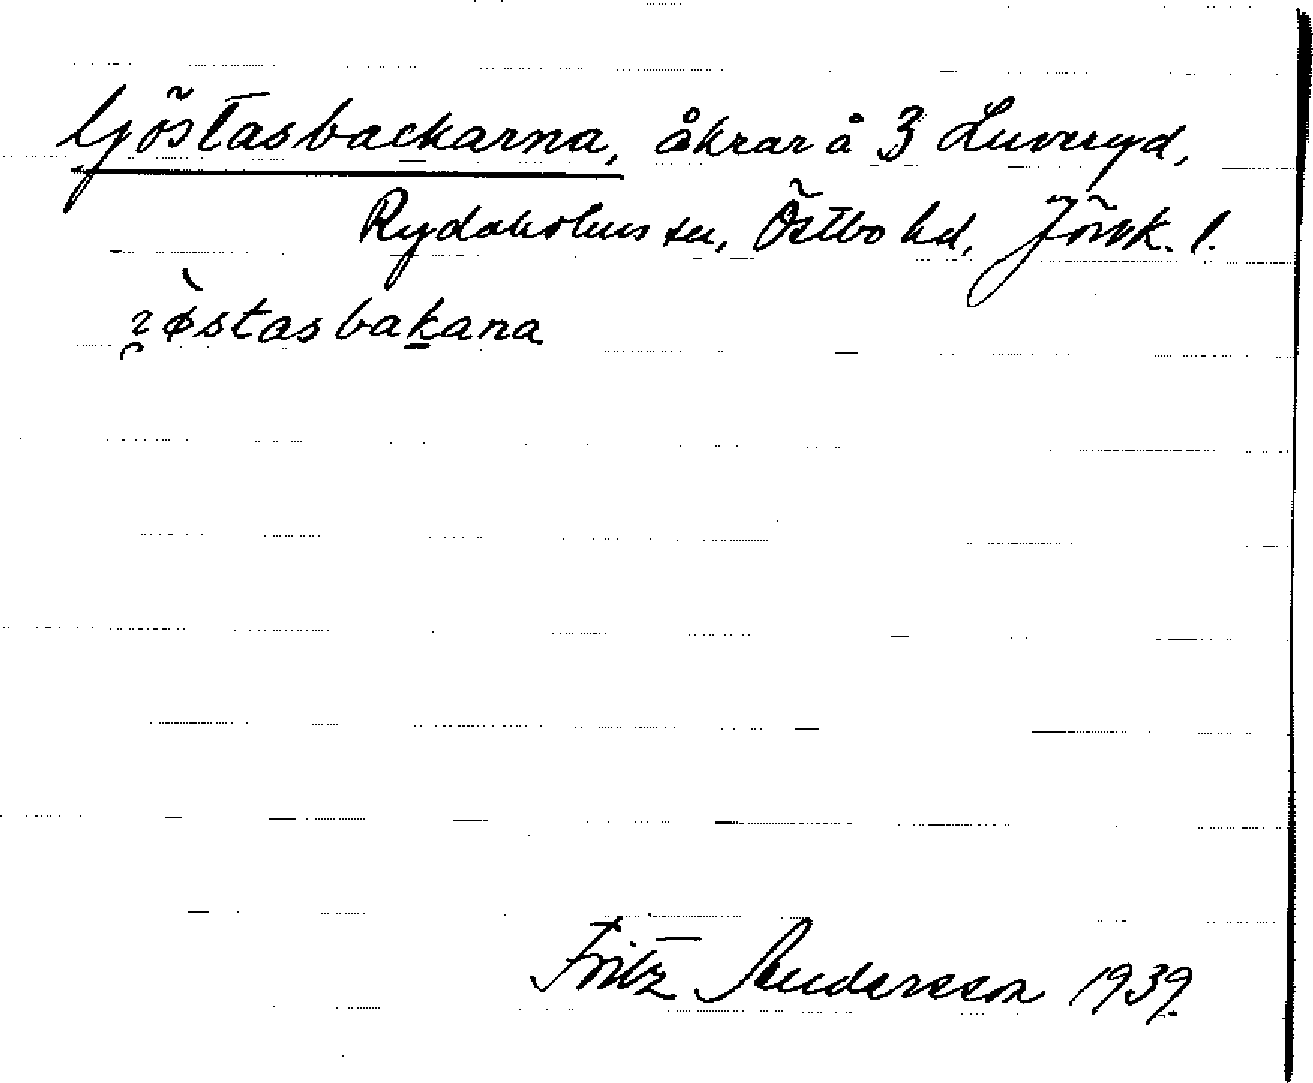 Göstasbackarna, åkrar å 3 Luveryd,
Rydaholms sn, Östbo hd, Jönk. l.
göstasbakana
Fritz Andersson 1939.